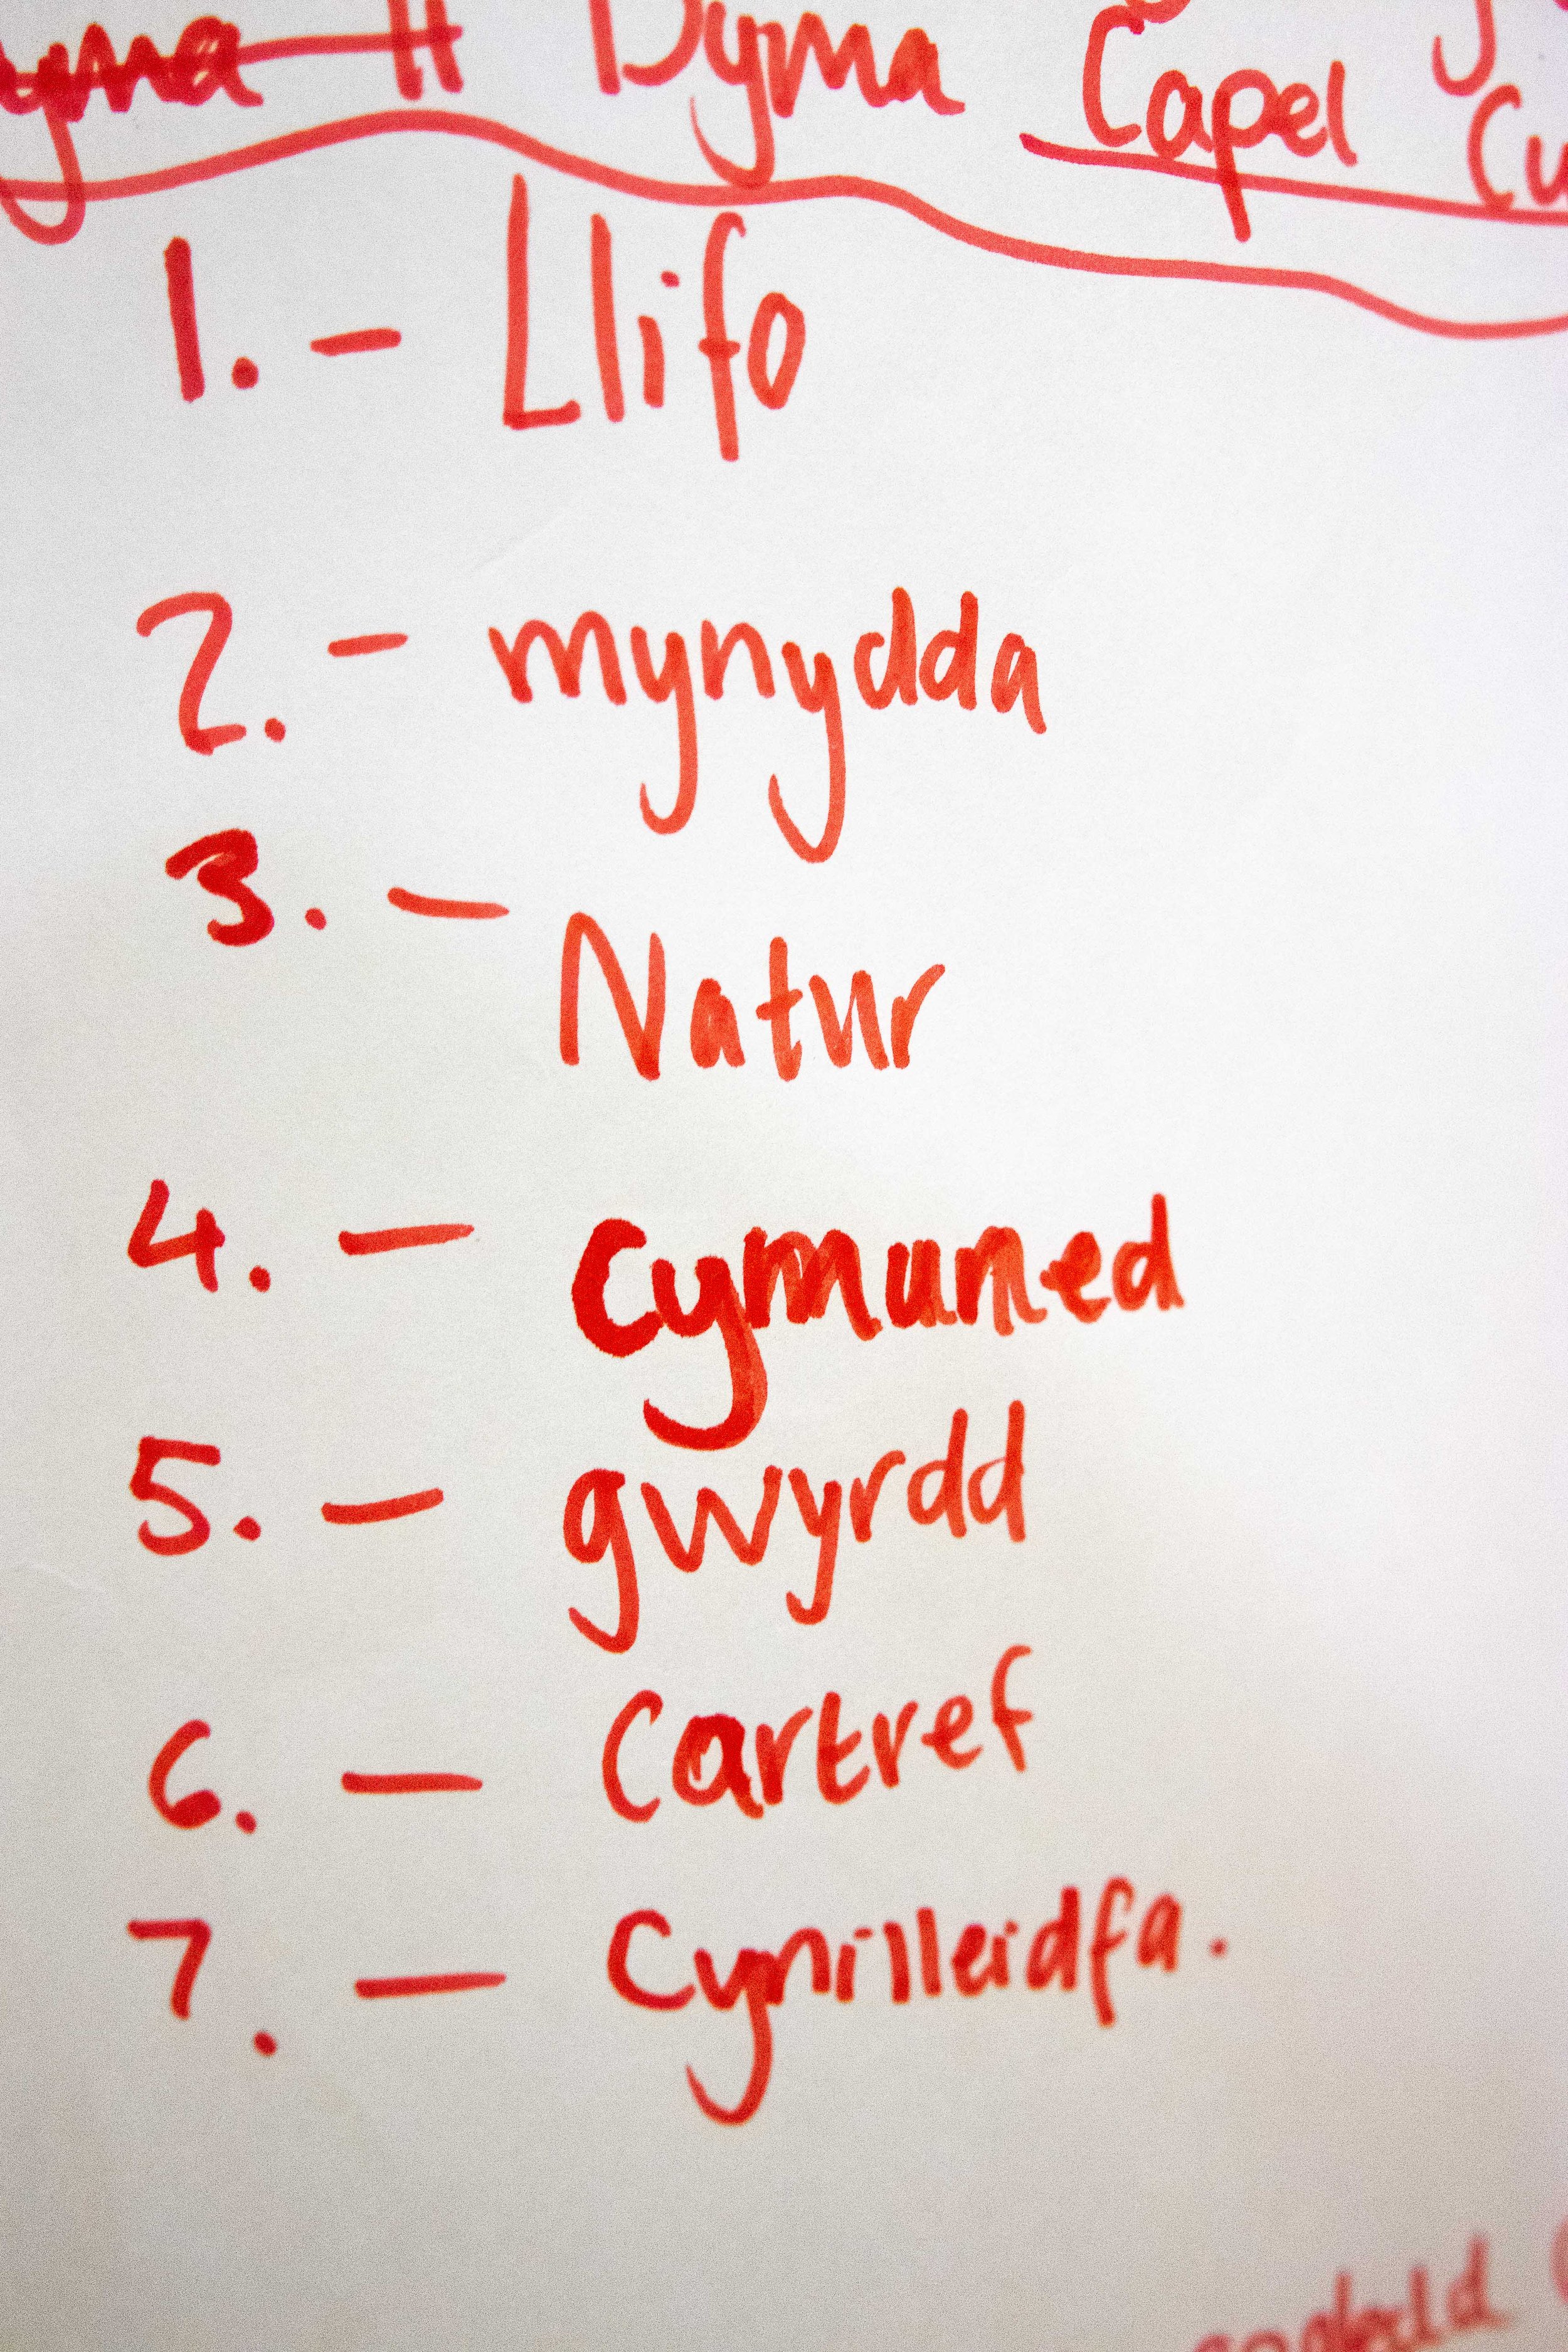 Dyma Capel
1. - Llifo
2. - mynydda
3. - Natur
4. - Cymuned
5. - gwyrdd
6. - Cartref
7. - Cynilleidfa.